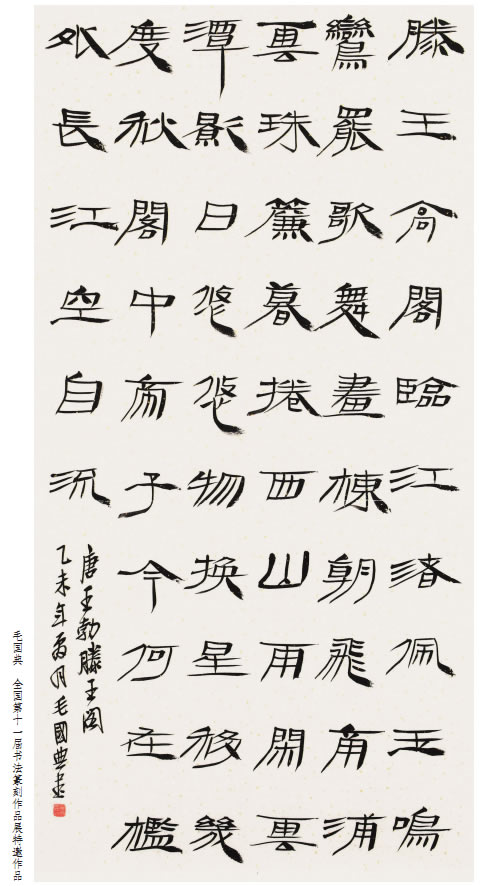 滕王高閣臨江渚佩玉鳴
鸞罷歌舞畫棟朝飛南浦
雲珠簾暮捲西山雨閑雲
潭影日悠悠物換星移幾
度秋閣中帝子今何在檻
外長江空自流
唐王勃滕王阁
乙未年月毛國典書
毛国典 全国第十一届书法篆刻作品展特邀作品